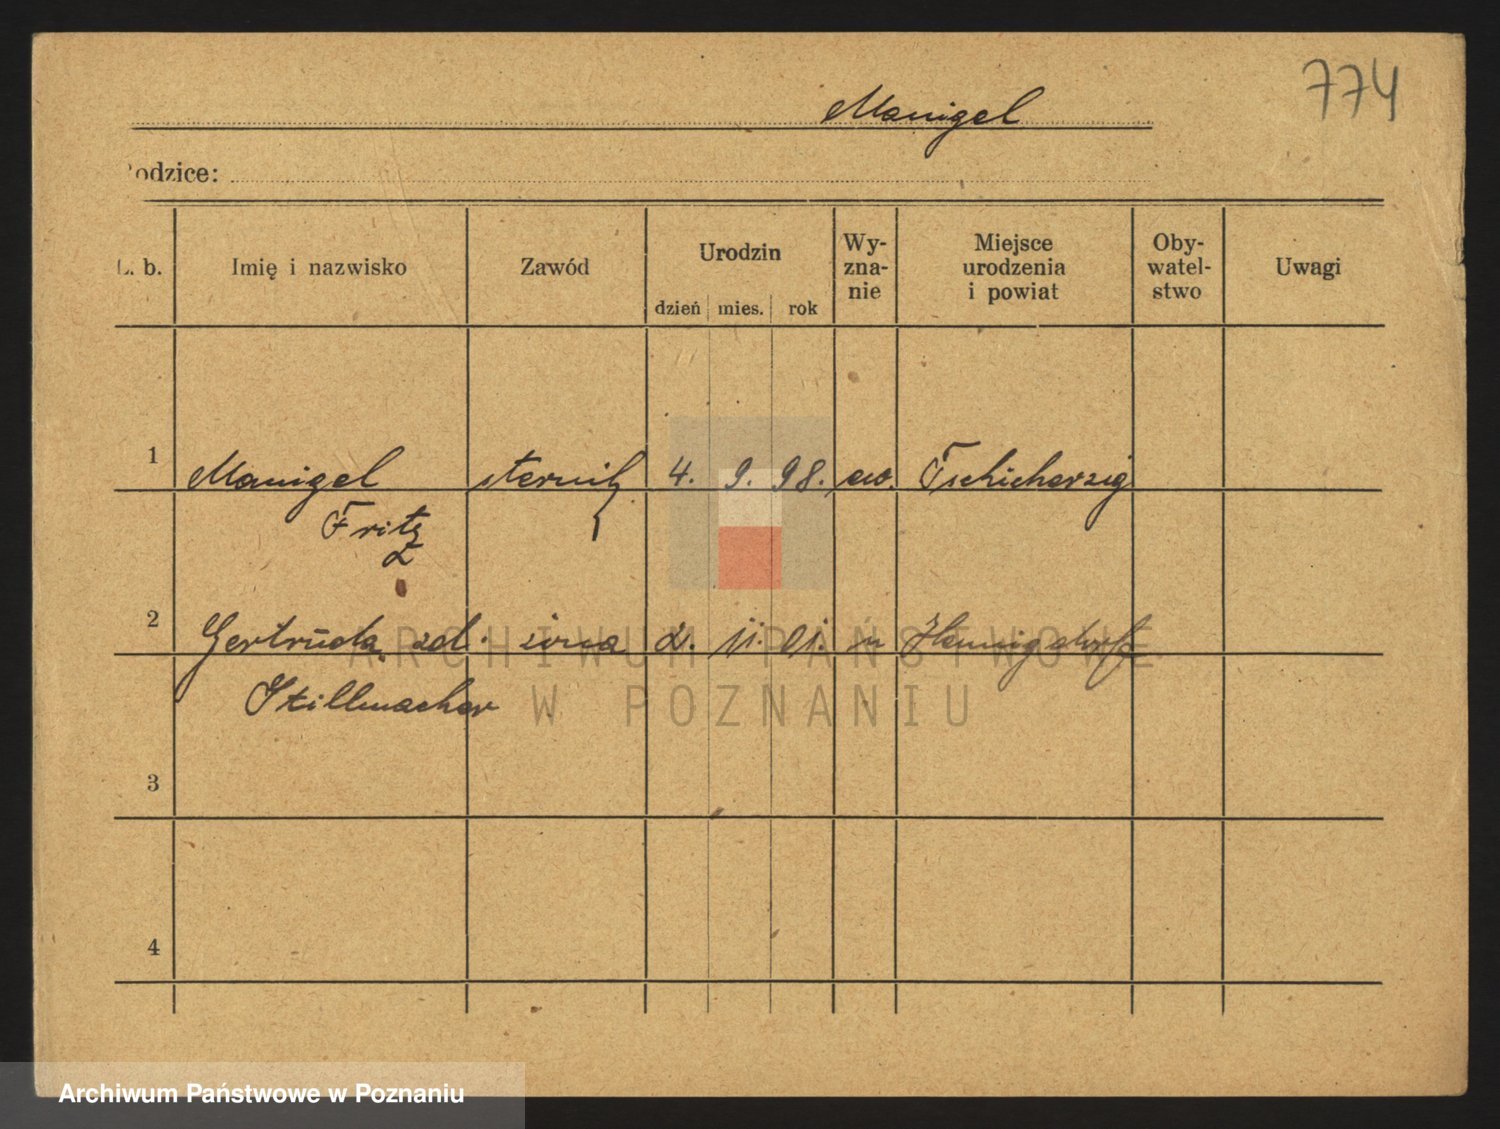 774
Manigel
odzice:
L. b. Imię i nazwisko Zawód Urodzin dzień mies. rok Wy-zna-nie Miejsce urodzenia i powiat Oby-watel-stwo Uwagi
1 Manigel sternik 4. 9. 98. ew. Tschicherzig
Fritz
2 Gertruda zd. żona 2. 11. 01. " Hennigsdorf
Stillmacher
3
4
ARCHIWUM PAŃSTWOWE
W POZNANIU
Archiwum Państwowe w Poznaniu